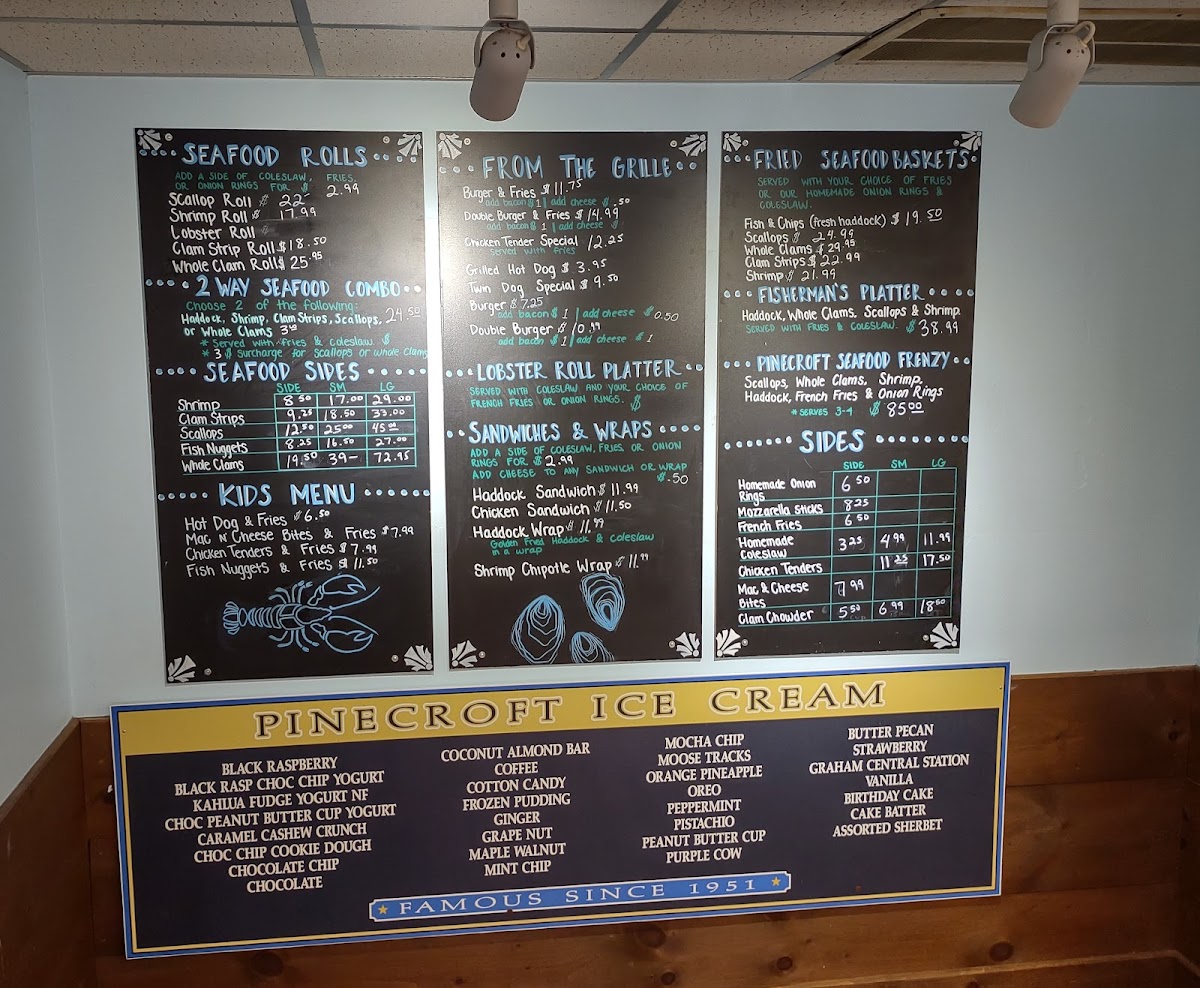 SEAFOOD ROLLS
ADD A SIDE OF COLESLAW, FRIES,
OR ONION RINGS FOR $ 2.99
Scallop Roll $ 22
Shrimp Roll $ 17.99
Lobster Roll $
Clam Strip Roll $18.50
Whole Clam Roll $ 25.95
2 WAY SEAFOOD COMBO
Choose 2 of the following:
Haddock, Shrimp, Clam Strips, Scallops, 24.50
or Whole Clams
* Served with fries & coleslaw. $
* 3 $ surcharge for scallops or whole clams
SEAFOOD SIDES
SIDE SM LG
Shrimp 8.50 17.00 29.00
Clam Strips 9.25 18.50 33.00
Scallops 12.50 25.00 45.00
Fish Nuggets 8.25 16.50 27.00
Whole Clams 19.50 39- 72.95
KIDS MENU
Hot Dog & Fries $ 6.50
Mac N Cheese Bites & Fries $ 7.99
Chicken Tenders & Fries $ 7.99
Fish Nuggets & Fries $ 11.50
FROM THE GRILLE
Burger & Fries $ 11.75
add bacon $ 1 | add cheese $ .50
Double Burger & Fries $ 14.99
add bacon $ 1 | add cheese $
Chicken Tender Special 12.25
served with fries
Grilled Hot Dog $ 3.95
Twin Dog Special $ 9.50
Burger $ 7.25
add bacon $ 1 | add cheese $ 0.50
Double Burger $ 10.99
add bacon $ 1 | add cheese $ 1
LOBSTER ROLL PLATTER
SERVED WITH COLESLAW AND YOUR CHOICE OF
FRENCH FRIES OR ONION RINGS. $
SANDWICHES & WRAPS
ADD A SIDE OF COLESLAW, FRIES, OR ONION
RINGS FOR $ 2.99
ADD CHEESE TO ANY SANDWICH OR WRAP
$ .50
Haddock Sandwich $ 11.99
Chicken Sandwich $ 11.50
Haddock Wrap $ 11.99
Golden Fried Haddock & coleslaw
in a wrap
Shrimp Chipotle Wrap $ 11.99
FRIED SEAFOOD BASKETS
SERVED WITH YOUR CHOICE OF FRIES
OR OUR HOMEMADE ONION RINGS &
COLESLAW.
Fish & Chips (fresh haddock) $ 19.50
Scallops $ 24.99
Whole Clams $ 29.95
Clam Strips $ 22.99
Shrimp $ 21.99
FISHERMAN'S PLATTER
Haddock, Whole Clams, Scallops & Shrimp.
SERVED WITH FRIES & COLESLAW. $ 38.99
PINECROFT SEAFOOD FRENZY
Scallops, Whole Clams, Shrimp,
Haddock, French Fries & Onion Rings
* SERVES 3-4 $ 85.00
SIDES
SIDE SM LG
Homemade Onion
Rings 6.50
Mozzarella sticks 8.25
French Fries 6.50
Homemade
Coleslaw 3.25 4.99 11.99
Chicken Tenders 11.25 17.50
Mac & Cheese
Bites 7.99
Clam Chowder 5.50 6.99 18.50
PINECROFT ICE CREAM
BLACK RASPBERRY
BLACK RASP CHOC CHIP YOGURT
KAHLUA FUDGE YOGURT NF
CHOC PEANUT BUTTER CUP YOGURT
CARAMEL CASHEW CRUNCH
CHOC CHIP COOKIE DOUGH
CHOCOLATE CHIP
CHOCOLATE
COCONUT ALMOND BAR
COFFEE
COTTON CANDY
FROZEN PUDDING
GINGER
GRAPE NUT
MAPLE WALNUT
MINT CHIP
MOCHA CHIP
MOOSE TRACKS
ORANGE PINEAPPLE
OREO
PEPPERMINT
PISTACHIO
PEANUT BUTTER CUP
PURPLE COW
BUTTER PECAN
STRAWBERRY
GRAHAM CENTRAL STATION
VANILLA
BIRTHDAY CAKE
CAKE BATTER
ASSORTED SHERBET
FAMOUS SINCE 1951